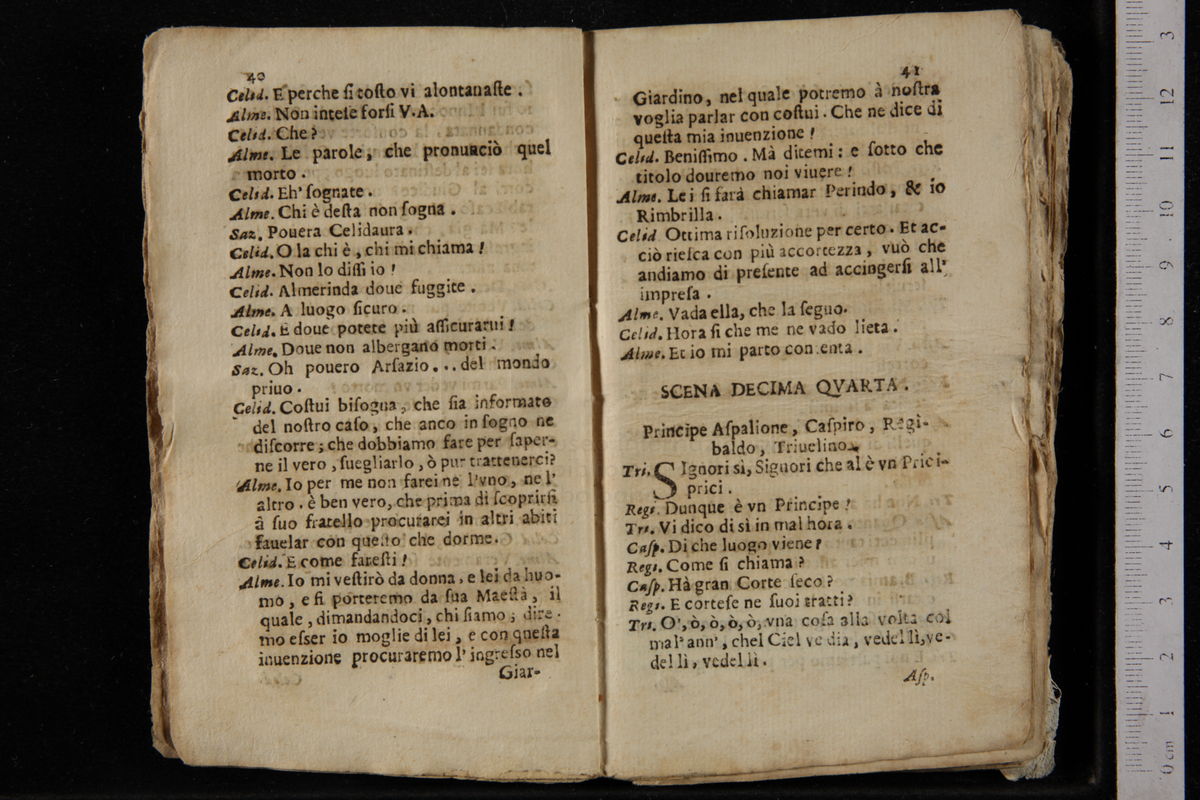 40
Celid. E perche ſi toſto vi alontanaſte .
Alme. Non inteſe forſi V.A.
Celid. Che ?
Alme. Le parole, che pronunciò quel
morto .
Celid. Eh' ſognate .
Alme. Chi è deſta non ſogna .
Saz. Pouera Celidaura .
Celid. O la chi è , chi mi chiama !
Alme. Non lo diſſi io !
Celid. Almerinda doue fuggite .
Alme. A luogo ſicuro .
Celid. E doue potete più aſſicurarui !
Alme. Doue non albergano morti .
Saz. Oh pouero Arſazio . . . del mondo
priuo .
Celid. Coſtui biſogna, che ſia informato
del noſtro caſo, che anco in ſogno ne
diſcorre ; che dobbiamo fare per ſaper-
ne il vero , ſuegliarlo , ò pur trattenerci?
Alme. Io per me non farei ne l'vno, ne l'
altro . è ben vero, che prima di ſcoprirſi
à ſuo fratello procurarei in altri abiti
fauelar con queſto che dorme.
Celid. E come fareſti !
Alme. Io mi veſtirò da donna , e lei da huo-
mo , e ſi porteremo da ſua Maeſtà , il
quale , dimandandoci, chi ſiamo ; dire-
mo eſſer io moglie di lei , e con queſta
inuenzione procuraremo l' ingreſſo nel
Giar-
41
Giardino, nel quale potremo à noſtra
voglia parlar con coſtui . Che ne dice di
queſta mia inuenzione !
Celid. Beniſſimo . Mà ditemi : e ſotto che
titolo douremo noi viuere !
Alme. Lei ſi farà chiamar Perindo, & io
Rimbrilla .
Celid Ottima riſoluzione per certo . Et ac-
ciò rieſca con più accortezza , vuò che
andiamo di preſente ad accingerſi all'
impreſa .
Alme. Vada ella, che la ſeguo.
Celid. Hora ſi che me ne vado lieta .
Alme. Et io mi parto con enta .
SCENA DECIMA QVARTA .
Principe Aſpalione, Caſpiro, Regi-
baldo, Triuelino.
Tri. SIgnori sì, Signori che al è vn Prici-
prici .
Regi. Dunque è vn Principe !
Tri. Vi dico di sì in mal hora .
Caſp. Di che luogo viene ?
Regi. Come ſi chiama ?
Caſp. Hà gran Corte ſeco ?
Regi. E corteſe ne ſuoi tratti ?
Tri. O', ò, ò, ò, ò, vna coſa alla volta col
mal' ann' , chel Ciel ve dia , vedel lì, ve-
del lì , vedel lì .
Aſp.